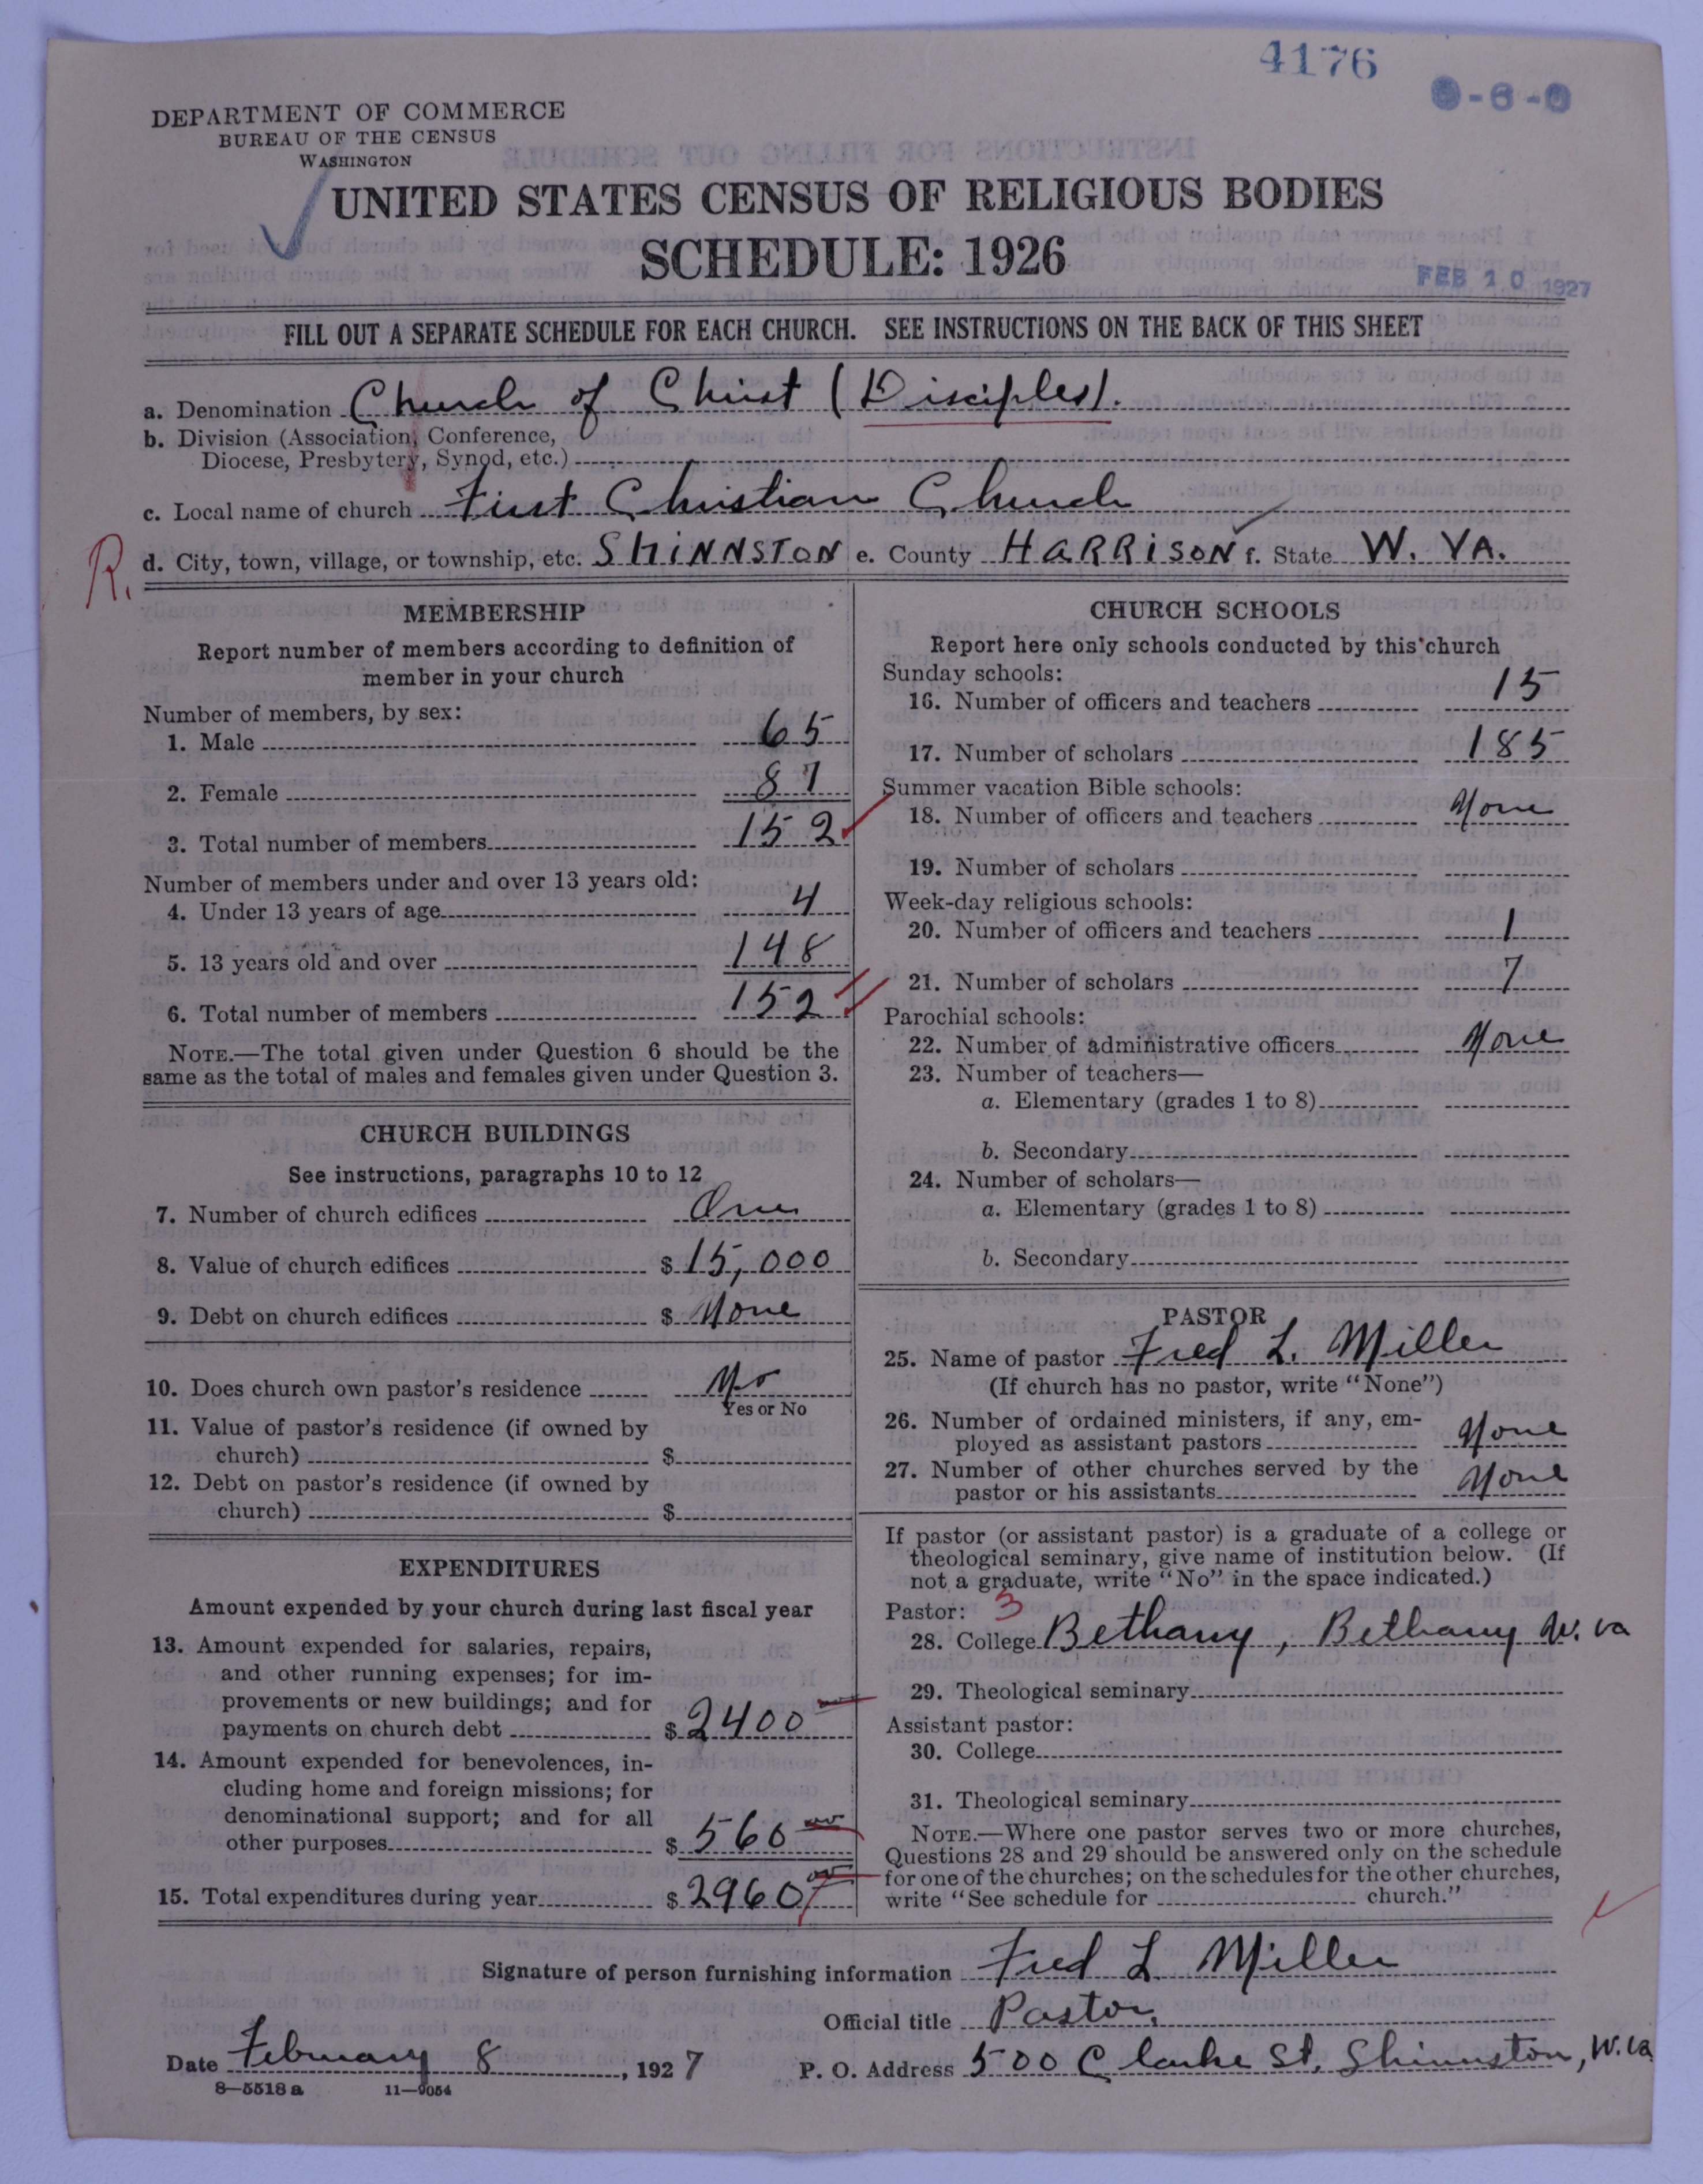 4176
DEPARTMENT OF COMMERCE
BUREAU OF THE CENSUS
WASHINGTON
UNITED STATES CENSUS OF RELIGIOUS BODIES
SCHEDULE: 1926
FEB 10 1927
FILL OUT A SEPARATE SCHEDULE FOR EACH CHURCH. SEE INSTRUCTIONS ON THE BACK OF THIS SHEET
a. Denomination Church of Christ (Disciples).
b. Division (Association, Conference,
Diocese, Presbytery, Synod, etc.)
c. Local name of church First Christian Church
R.
d. City, town, village, or township, etc. SHINNSTON e. County HARRISON f. State W. VA.
MEMBERSHIP
Report number of members according to definition of
member in your church
Number of members, by sex:
1. Male 65
2. Female 87
3. Total number of members 152
Number of members under and over 13 years old:
4. Under 13 years of age 4
5. 13 years old and over 148
6. Total number of members 152
NOTE.—The total given under Question 6 should be the
same as the total of males and females given under Question 3.
CHURCH BUILDINGS
See instructions, paragraphs 10 to 12
7. Number of church edifices One
8. Value of church edifices $ 15,000
9. Debt on church edifices $ None
10. Does church own pastor's residence No
Yes or No
11. Value of pastor's residence (if owned by
church) $
12. Debt on pastor's residence (if owned by
church) $
EXPENDITURES
Amount expended by your church during last fiscal year
13. Amount expended for salaries, repairs,
and other running expenses; for im-
provements or new buildings; and for
payments on church debt $ 2400
14. Amount expended for benevolences, in-
cluding home and foreign missions; for
denominational support; and for all
other purposes $ 560
15. Total expenditures during year $ 2960
CHURCH SCHOOLS
Report here only schools conducted by this church
Sunday schools:
16. Number of officers and teachers 15
17. Number of scholars 185
Summer vacation Bible schools:
18. Number of officers and teachers None
19. Number of scholars
Week-day religious schools:
20. Number of officers and teachers 1
21. Number of scholars 7
Parochial schools:
22. Number of administrative officers None
23. Number of teachers—
a. Elementary (grades 1 to 8)
b. Secondary
24. Number of scholars—
a. Elementary (grades 1 to 8)
b. Secondary
PASTOR
25. Name of pastor Fred L. Miller
(If church has no pastor, write "None")
26. Number of ordained ministers, if any, em-
ployed as assistant pastors None
27. Number of other churches served by the
pastor or his assistants None
If pastor (or assistant pastor) is a graduate of a college or
theological seminary, give name of institution below. (If
not a graduate, write "No" in the space indicated.)
Pastor: 3
28. College Bethany, Bethany W. Va
29. Theological seminary
Assistant pastor:
30. College
31. Theological seminary
NOTE.—Where one pastor serves two or more churches,
Questions 28 and 29 should be answered only on the schedule
for one of the churches; on the schedules for the other churches,
write "See schedule for church."
Signature of person furnishing information Fred L Miller
Official title Pastor.
Date February 8, 1927 P. O. Address 500 Clarke St. Shinnston, W. Va
8—5518 a 11—9054